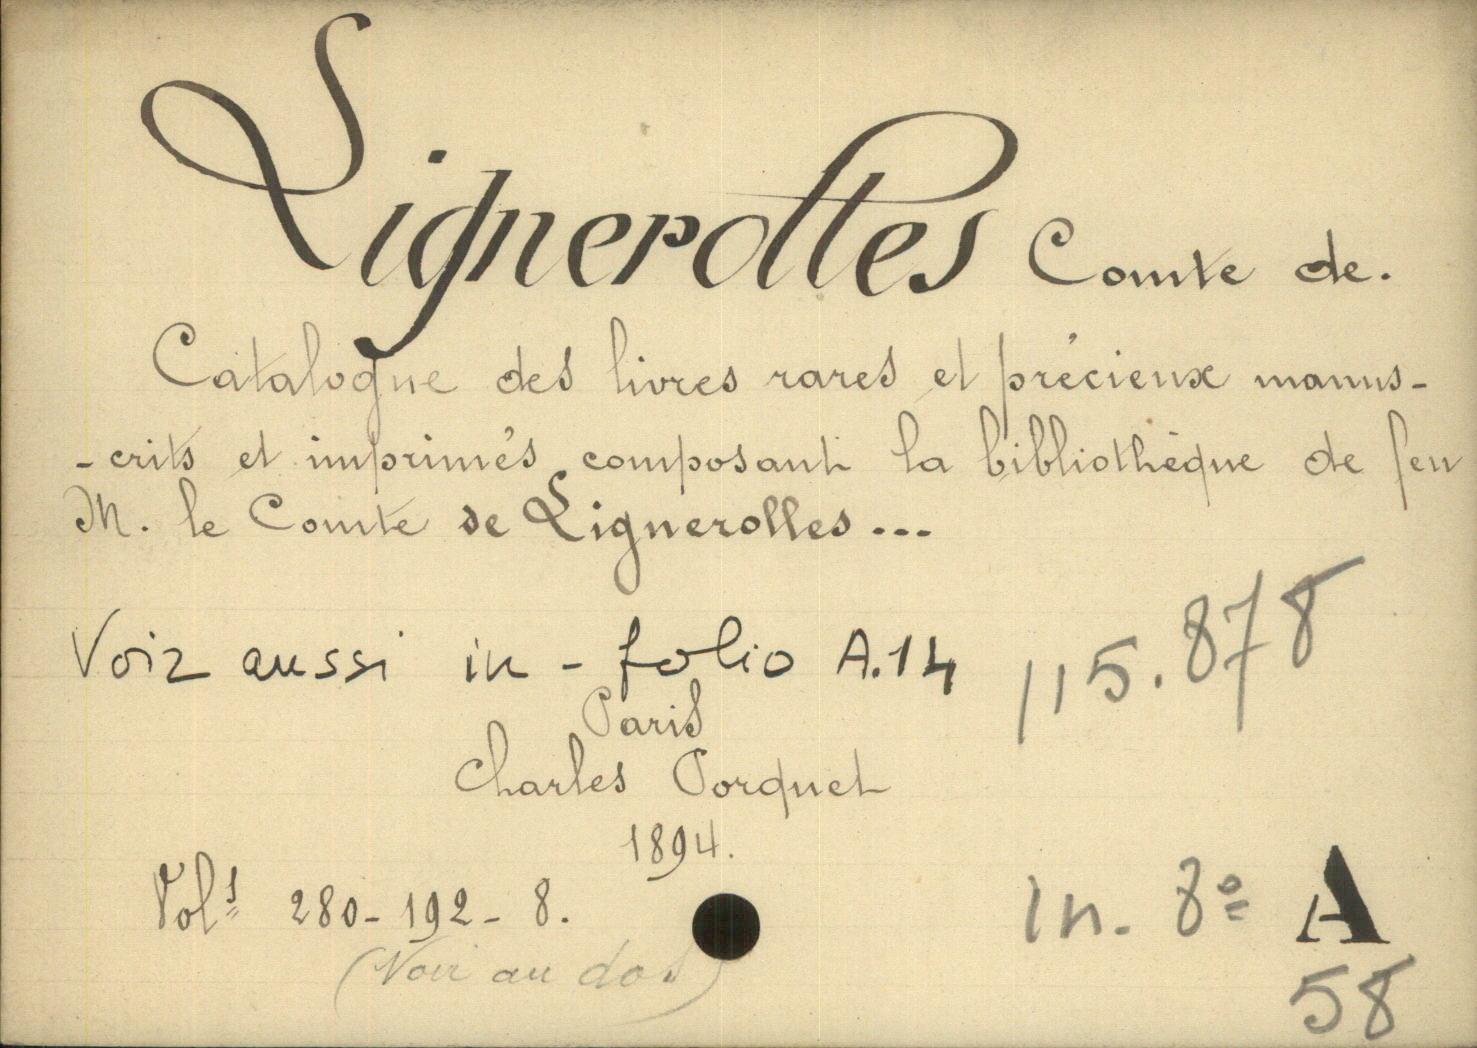 Lignerolles Comte de.
Catalogue des livres rares et précieux manus-
-crits et imprimés, composant la bibliothèque de feu
M. le Comte de Lignerolles...
Voir aussi in-folio A.14 115.878
Paris
Charles Porquet
1894.
Vols 280-192-8. in. 8º A
(Voir au dos) 58